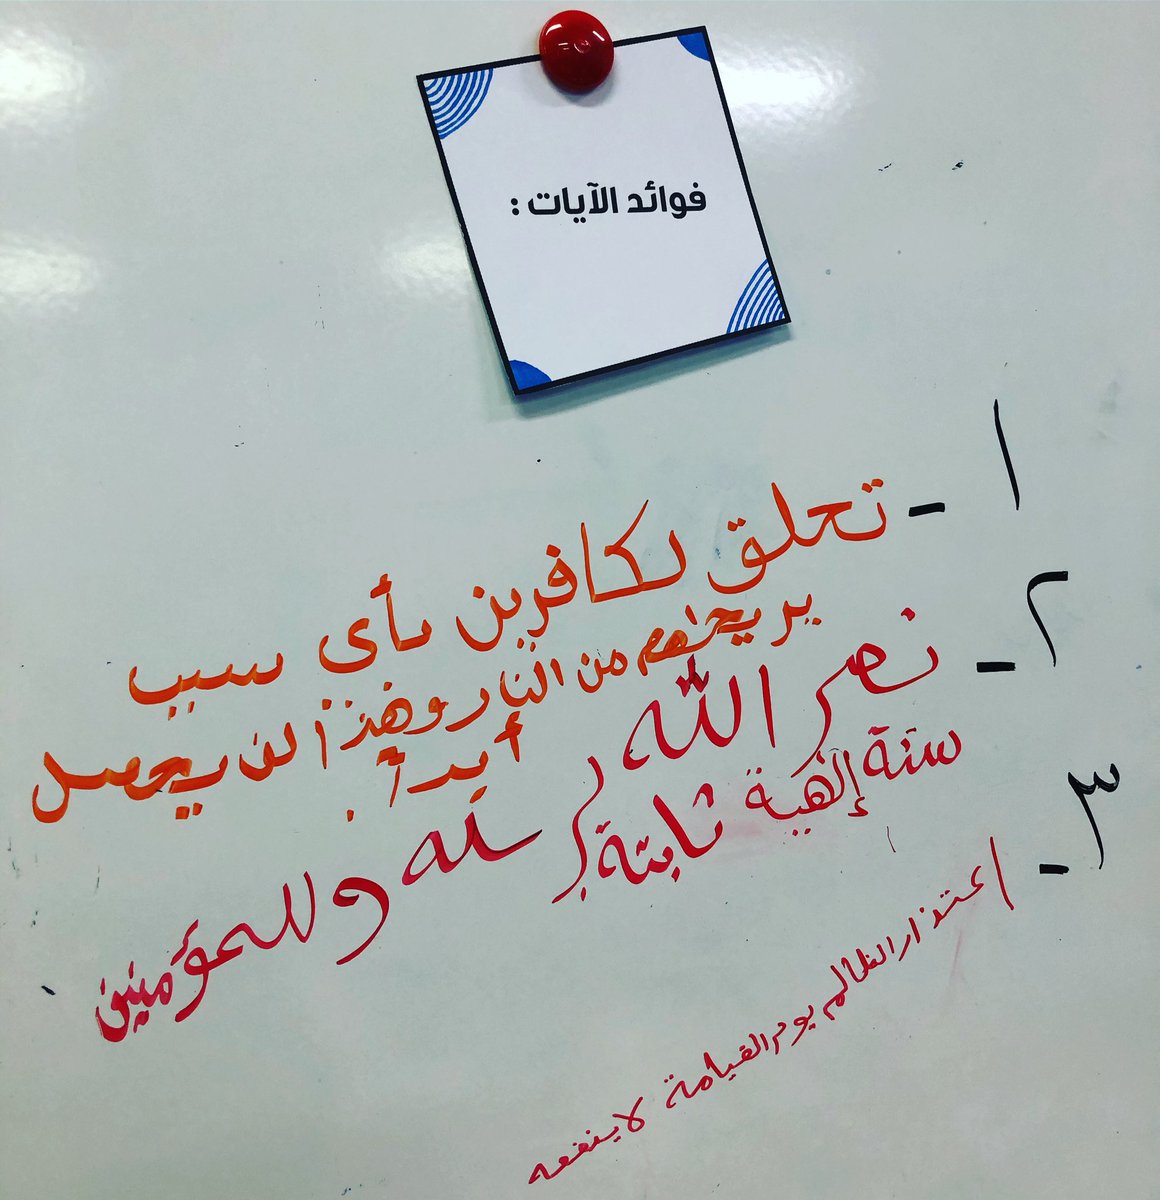 فوائد الآيات :
١ - تحلق لكافرين بأي سبب
يريحهم من النار وهذا لن يحصل
أبداً
٢ - نصر الله لرسله وللمؤمنين
سنة إلهية ثابتة
٣ - اعتذار الظالم يوم القيامة لا ينفعه